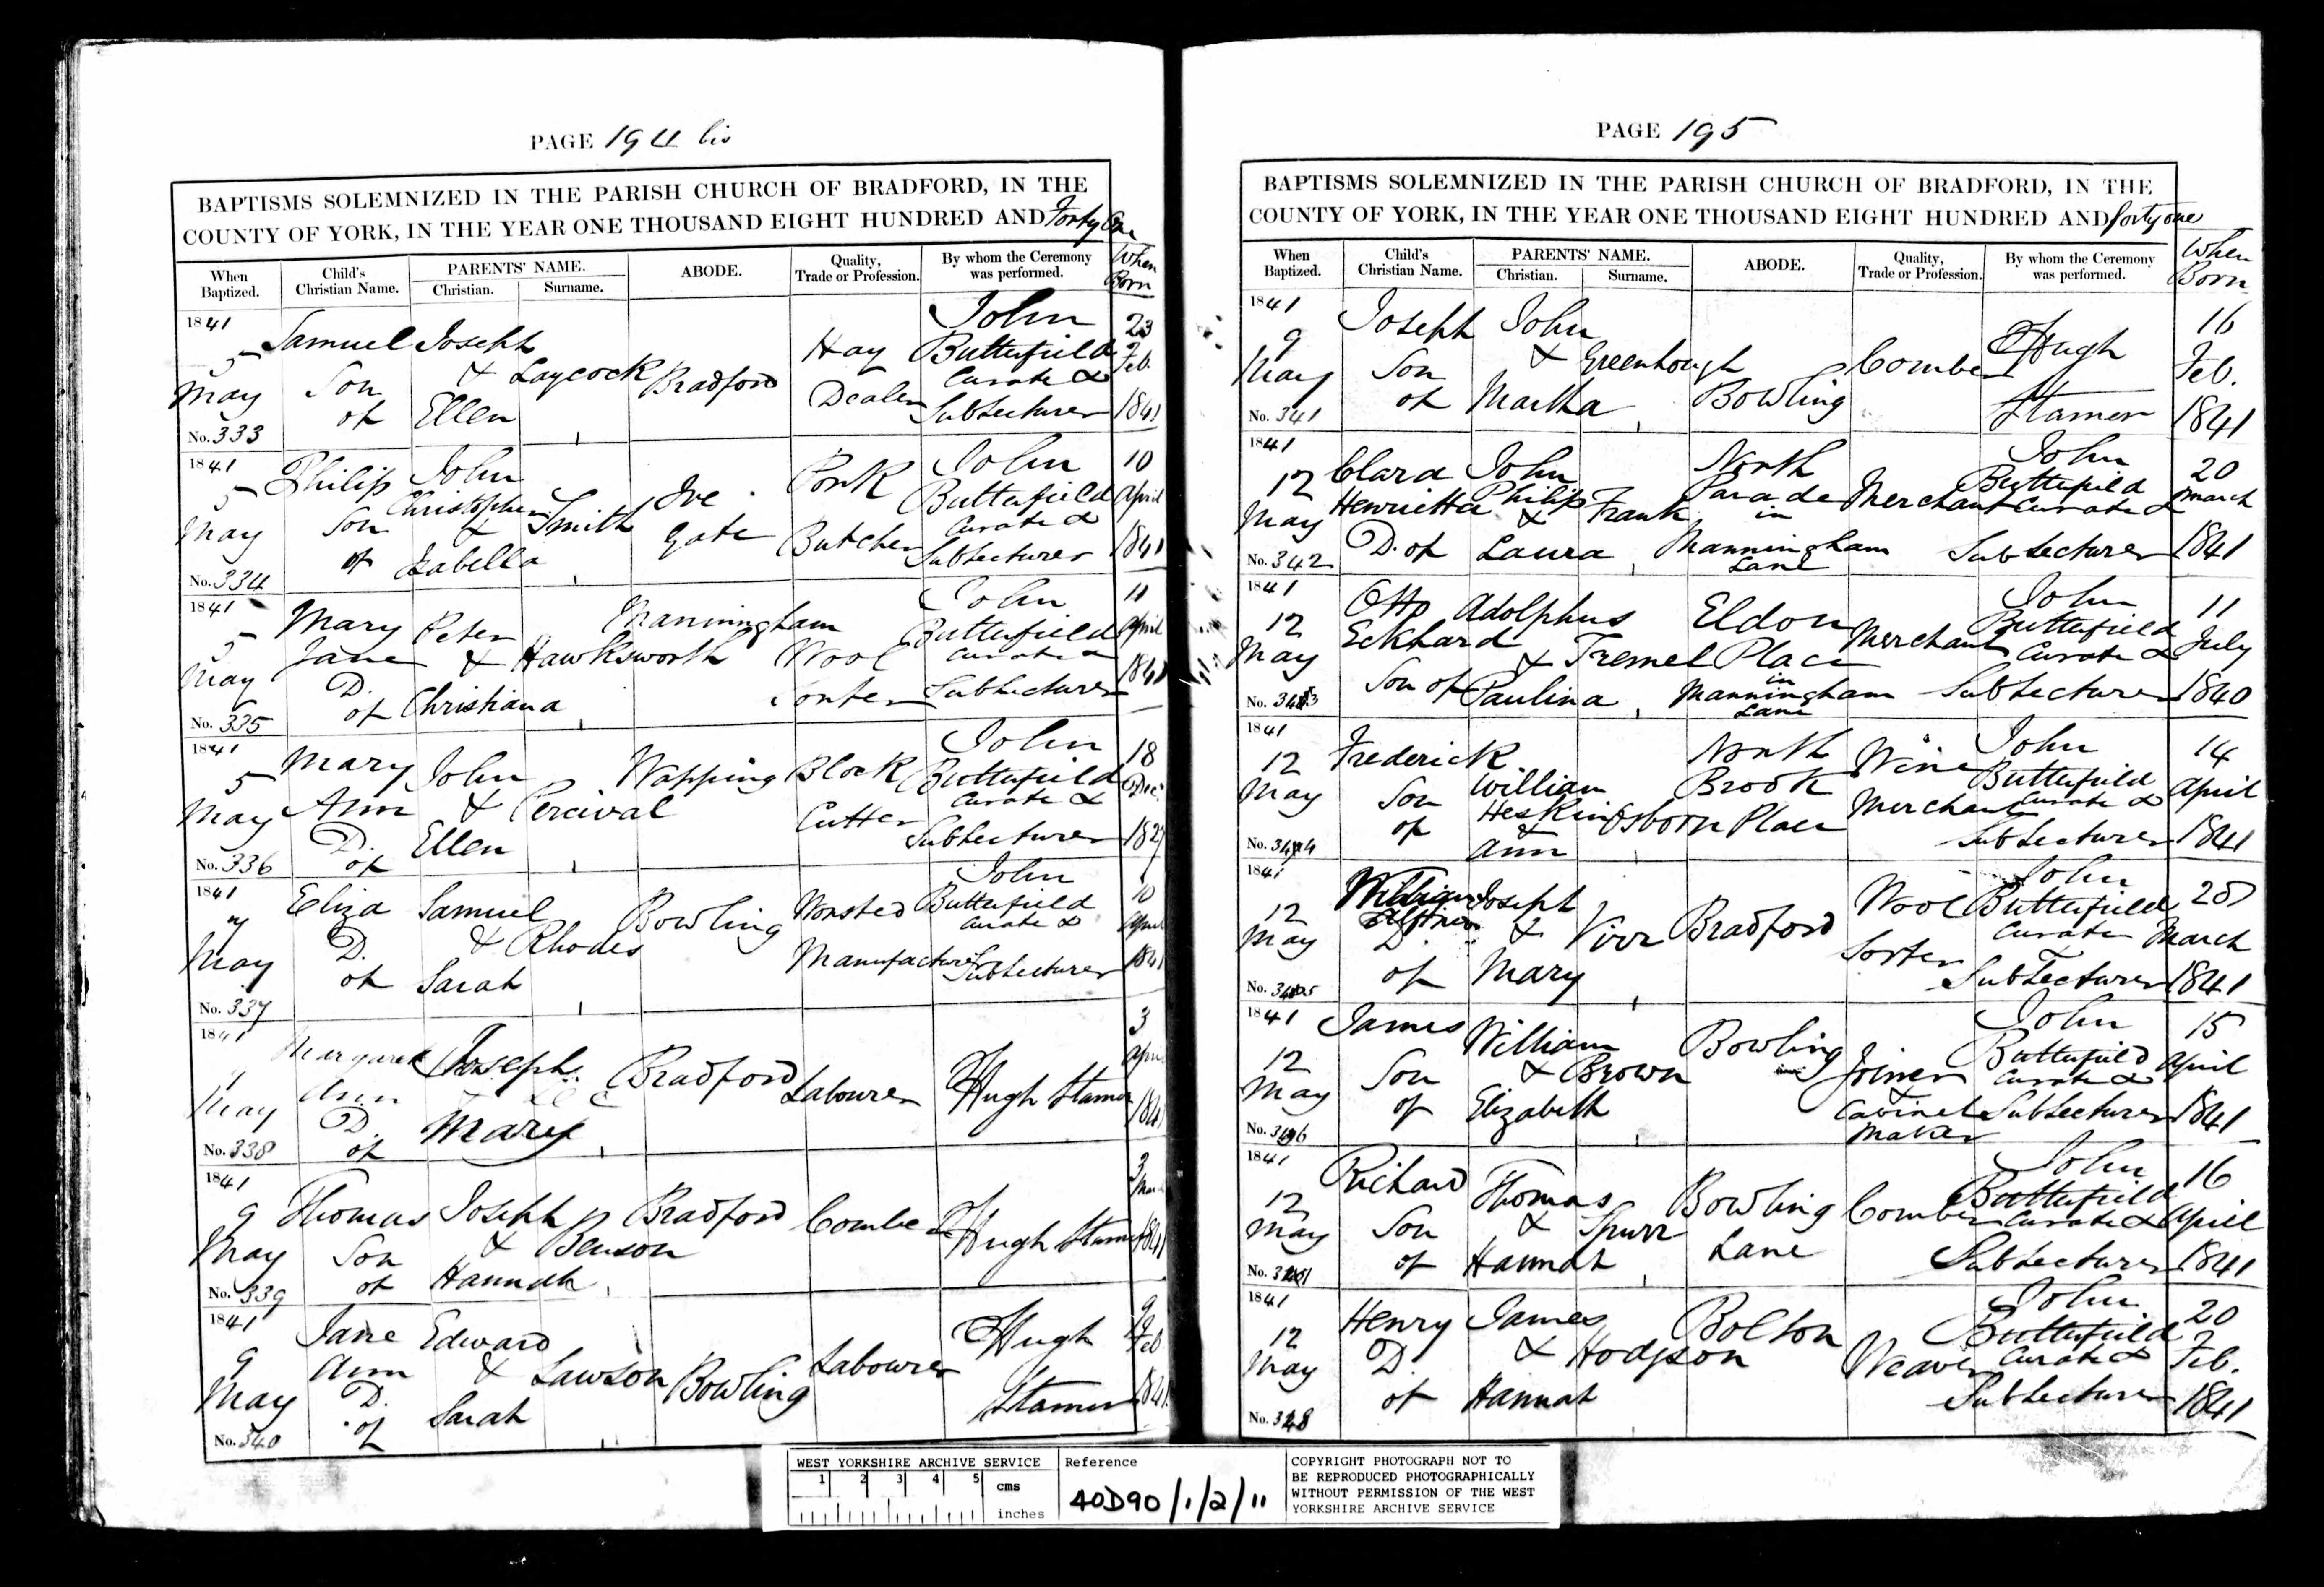 PAGE 194 bis
BAPTISMS SOLEMNIZED IN THE PARISH CHURCH OF BRADFORD, IN THE
COUNTY OF YORK, IN THE YEAR ONE THOUSAND EIGHT HUNDRED AND Forty One
When Baptized. Child's Christian Name. PARENTS' NAME. Christian. Surname. ABODE. Quality, Trade or Profession. By whom the Ceremony was performed. When Born
1841 5 May No. 333 Samuel Son of Joseph & Ellen Laycock Bradford Hay Dealer John Butterfield Curate & SubLecturer 23 Feb. 1841
1841 5 May No. 334 Philip Son of John Christopher & Izabella Smith Ive gate Pork Butcher John Butterfield Curate & SubLecturer 10 April 1841
1841 5 May No. 335 Mary Jane D. of Peter & Christiana Hawksworth Manningham Wool Sorter John Butterfield Curate & SubLecturer 11 April 1841
1841 5 May No. 336 Mary Ann D. of John & Ellen Percival Wapping Block Cutter John Butterfield Curate & SubLecturer 18 Dec. 1827
1841 7 May No. 337 Eliza D. of Samuel & Sarah Rhodes Bowling Worsted Manufacturer John Butterfield Curate & SubLecturer 10 April 1841
1841 9 May No. 338 Margaret Ann D. of Joseph & Mary Bradford Labourer Hugh Stamer 3 April 1841
1841 9 May No. 339 Thomas Son of Joseph & Hannah Benson Bradford Comber Hugh Stamer 3 March 1841
1841 9 May No. 340 Jane Ann D. of Edward & Sarah Lawson Bowling Labourer Hugh Stamer Feb 1841
PAGE 195
BAPTISMS SOLEMNIZED IN THE PARISH CHURCH OF BRADFORD, IN THE
COUNTY OF YORK, IN THE YEAR ONE THOUSAND EIGHT HUNDRED AND forty one
When Baptized. Child's Christian Name. PARENTS' NAME. Christian. Surname. ABODE. Quality, Trade or Profession. By whom the Ceremony was performed. When Born
1841 9 May No. 341 Joseph Son of John & Martha Greenhough Bowling Comber Hugh Stamer 16 Feb. 1841
1841 12 May No. 342 Clara Henrietta D. of John Philip & Laura Frank North Parade in Manningham Lane Merchant John Butterfield Curate & SubLecturer 20 March 1841
1841 12 May No. 343 Otto Eckhard Son of Adolphus & Paulina Tremel Eldon Place in Manningham Lane Merchant John Butterfield Curate & SubLecturer 11 July 1840
1841 12 May No. 344 Frederick Son of William Heskin & Ann Osborn North Brook Place Wine Merchant John Butterfield Curate & SubLecturer 14 April 1841
1841 12 May No. 345 D. of Joseph & Mary Virr Bradford Wool Sorter John Butterfield Curate SubLecturer 28 March 1841
1841 12 May No. 346 James Son of William & Elizabeth Brown Bowling Joiner & Cabinet Maker John Butterfield Curate & SubLecturer 15 April 1841
1841 12 May Richard Son of Thomas & Hannah Spurr Bowling Lane Comber John Butterfield Curate & SubLecturer 16 April 1841
1841 12 May No. 348 Henry D. of James & Hannah Hodgson Bolton Weaver John Butterfield Curate & SubLecturer 20 Feb. 1841
WEST YORKSHIRE ARCHIVE SERVICE
1 2 3 4 5 cms
inches
Reference
40D90/1/2/11
COPYRIGHT PHOTOGRAPH NOT TO
BE REPRODUCED PHOTOGRAPHICALLY
WITHOUT PERMISSION OF THE WEST
YORKSHIRE ARCHIVE SERVICE